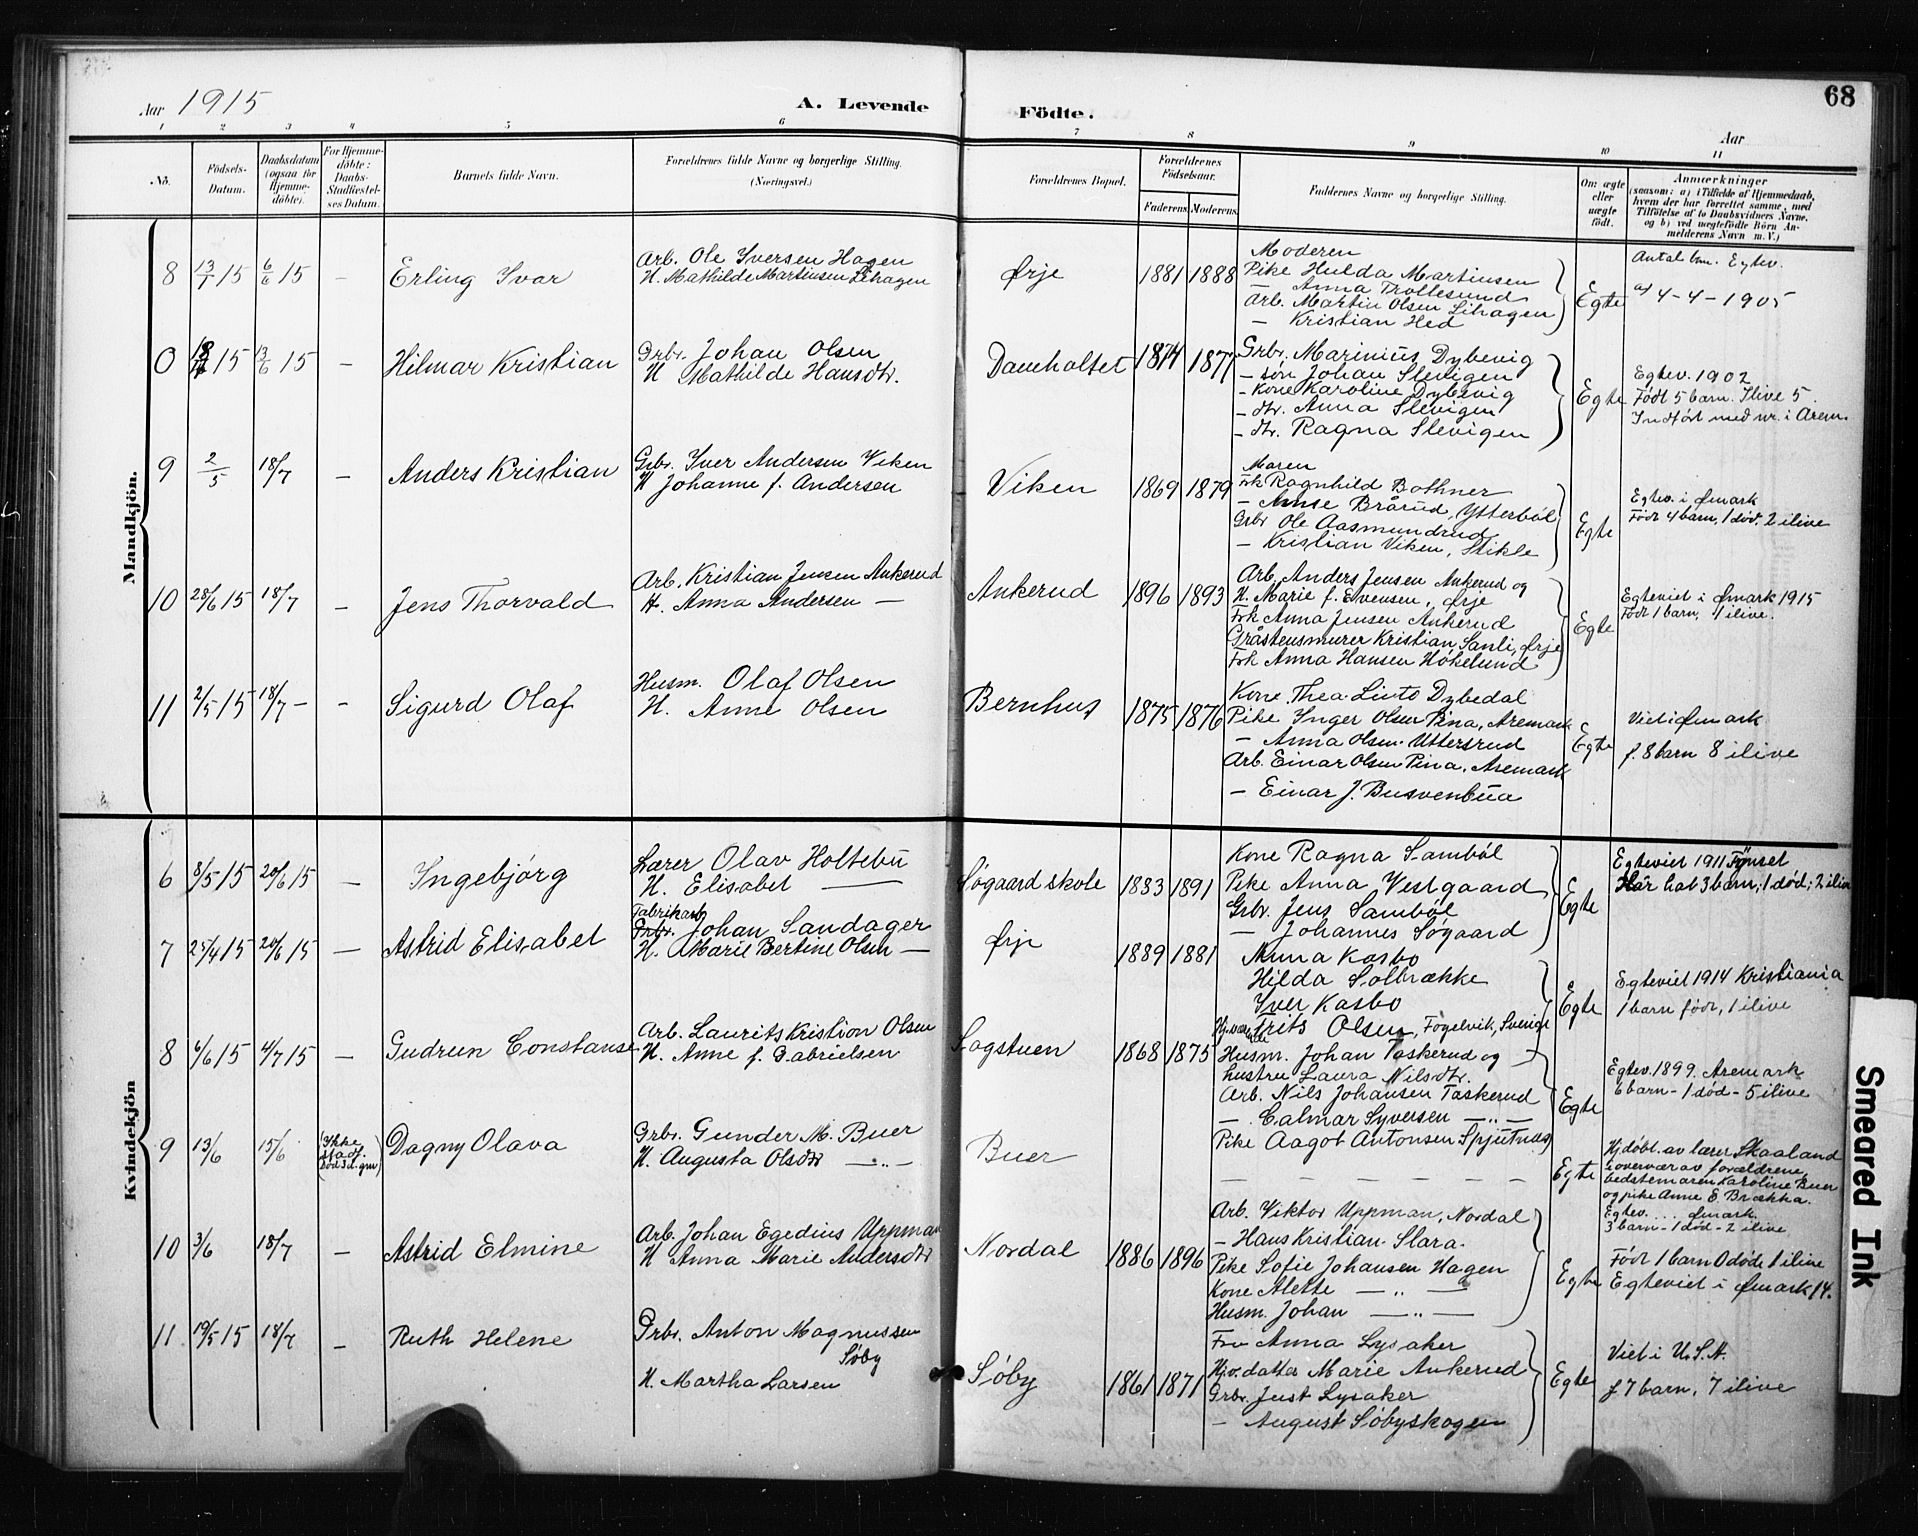 Aar 1915
A. Levende
Födte.
68
Aar
1 2 3 4 5 6 7 8 9 10 11
No.
Födsels-
Datum.
Daabsdatum
(ogsaa for
Hjemme-
döbte).
For Hjemme-
döbte:
Daabs-
Stadfæstel-
ses Datum.
Barnets fulde Navn.
Forældrenes fulde Navne og borgerlige Stilling.
(Næringsvei.)
Forældrenes Bopæl.
Forældrenes
Födselsaar.
Faderens. Moderens.
Faddernes Navne og borgerlige Stilling.
Om ægte
eller
uægte
födt.
Anmærkninger
(saasom: a) i Tilfælde af Hjemmedaab,
hvem der har forrettet samme, med
Tilföielse af to Daabsvidners Navne,
og b) ved uægtefödte Börn An-
melderens Navn m. V.)
Mandkjön.
8 13/1 15 6/6 15 – Erling Ivar
Arb. Ole Iversen Hagen
H. Mathilde Martinsen Lihagen
Ørje 1881 1888
Moderen
Pike Hulda Martinsen
– Anna Trollesund
Arb. Martin Olsen Lihagen
– Kristian Hed
Egte
Antal bm. Egtev.
4-4-1905
0 15 13/6 15 – Hilmar Kristian
Grbr. Johan Olsen
H Mathilde Hansdtr.
Dameholtet 1874 1877
Grbr. Marinius Dybevig
– søn Johan Slevigen
– Kone Karoline Dybevig
– dtr. Anna Slevigen
– dtr. Ragna Slevigen
Egte
Egtev. 1902
Født 5 barn. Ilive 5.
Indført med nr. i Arem.
9 2/5 18/7 – Anders Kristian
Grbr. Iver Andersen Viken
H Johanne f. Andersen
Viken 1869 1879
Maren
Frk Ragnhild Bothner
– Amse Brårud, Ytterbøl
Grbr Ole Aasmundrud
– Kristian Viken, Stikle
Egte
Egtev. i Ømark
Født 4 barn, 1 død, 2 ilive
10 28/6 15 18/7 – Jens Thorvald
Arb. Kristian Jensen Ankerud
H. Anna Andersen –
Ankerud 1896 1893
Arb. Anders Jensen Ankerud og
H. Marie f. Evensen, Ørje
Frk Anna Jensen Ankerud
Gråstensmurer Kristian Sanli, Ørje
Frk Anna Hansen Høkelund
Egte
Egteviet i Ømark 1915
Født 1 barn, 1 ilive.
11 2/5 15 18/7 – – Sigurd Olaf
Husm. Olaf Olsen
H. Anne Olsen
Bernhus 1875 1876
Kone Thea Linto Dybedal
Pike Inger Olsen Pina, Aremark
– Anna Olsen Uttersrud
Arb. Einar Olsen Pina, Aremark
– Einar J. Busvenbua
Egte
Viet i Ømark
f. 8 barn 8 ilive
Kvindekjön
6 8/5 15 20/6 15 – Ingebjørg
Lærer Olav Holtebu
H. Elisabet –
Søgaard skole 1883 1891
Kone Ragna Sambøl
Pike Anna Vestgaard
Grbr. Jens Sambøl
– Johannes Søgaard
Egte
Egteviet 1911 Tynset
Har hat 3 barn; 1 død; 2 ilive
7 25/4 15 20/6 15 – Astrid Elisabet
Fabrikarb
Grbr. Johan Sandager
H. Marie Bertine Olsen –
Ørje 1889 1881
Anna Kasbo
Hilda Solbrække
Iver Kasbo
Frits Olsen, Fogelvik, Sverige
Egte
Egteviet 1914 Kristiania
1 barn født, 1 ilive
8 6/6 15 4/7 15 – Gudrun Constanse
Arb. Laurits Kristion Olsen
H. Anne f. Gabrielsen
Sagstuen 1868 1875
Husm. Johan Taskerud og
hustru Laura Nilsdtr.
Arb. Nils Johansen Taskerud
– Calmar Syversen – „ –
Pike Aagot Antonsen Spjutnæs
Egte
Egtev. 1899. Aremark
6 barn – 1 død – 5 ilive
9 13/6 15/6
(Ikke
stadf.
Død 3 d. gml)
Dagny Olava
Grbr. Gunder M. Buer
H. Augusta Olsdtr – „ –
Buer
– – – – – – – –
Egte
Hj.døbt. av lærer Skaaland
i overvær av forældrene,
bedstemoren Karoline Buer
og pike Anne E. Brækka.
Egtev. .... Ømark.
3 barn – 1 død – 2 ilive
10 3/6 18/7 – Astrid Elmine
Arb. Johan Egedius Uppman
H Anna Marie Andersdtr
Nordal 1886 1896
Arb. Viktor Uppman, Nordal
– Hans Kristian Slara
Pike Sofie Johansen Hagen
Kone Alette – „ –
Husm. Johan – „ –
Egte
Født 1 barn 0 døde 1 ilive
Egteviet i Ømark 14.
11 19/5 15 18/7 – Ruth Helene
Grbr. Anton Magnussen
Søby
H. Martha Larsen
Søby 1861 1871
Fru Anna Lysaker
Hjv.datter Marie Ankerud
Grbr. Just Lysaker
– August Søbyskogen
Egte
Viet i U.S.A.
f 7 barn, 7 ilive
Smeared Ink